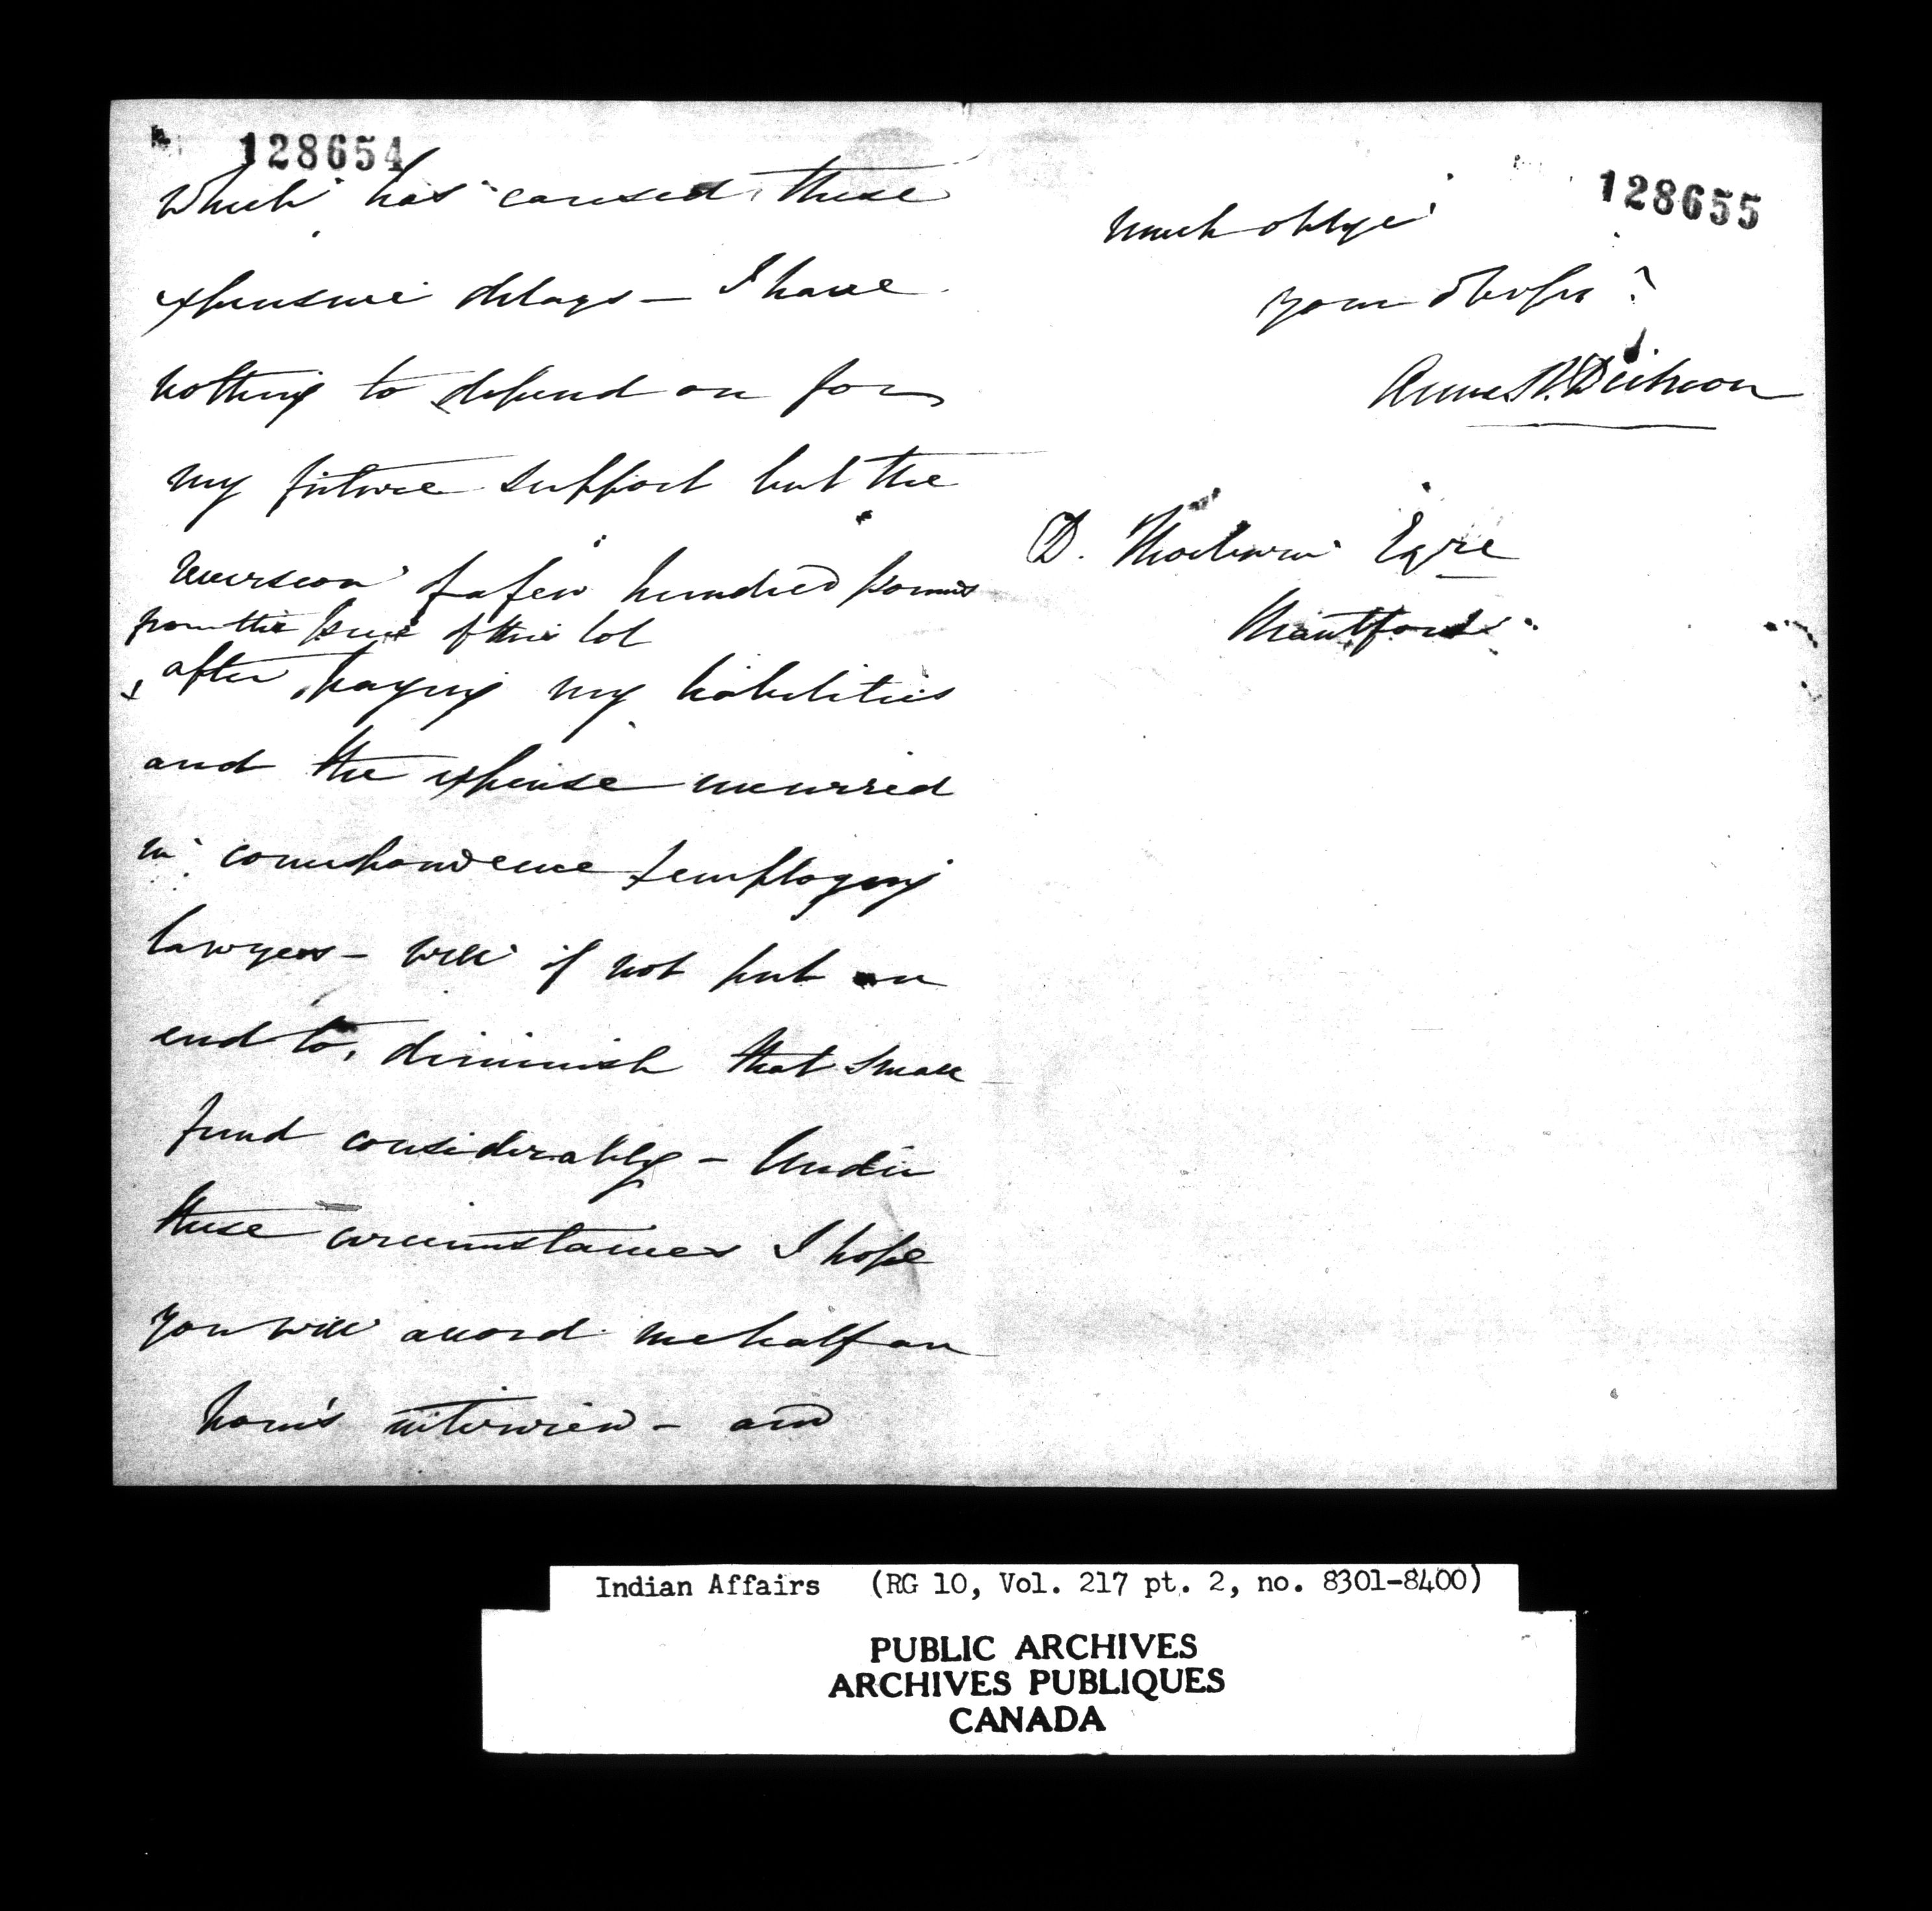 128654
which has caused these
expensive delays – I have
nothing to depend on for
my future support but the
reversion of a few hundred pounds
from the price of this lot
after paying my liabilities
and the expense incurred
in correspondence & employing
lawyers – will if not put an
end to, diminish that small
fund considerably – Under
these circumstances I hope
you will accord me half an
hour's interview – and
128655
much oblige
your
Anne
D. Esqre
Brantford
Indian Affairs (RG 10, Vol. 217 pt. 2, no. 8301-8400)
PUBLIC ARCHIVES
ARCHIVES PUBLIQUES
CANADA